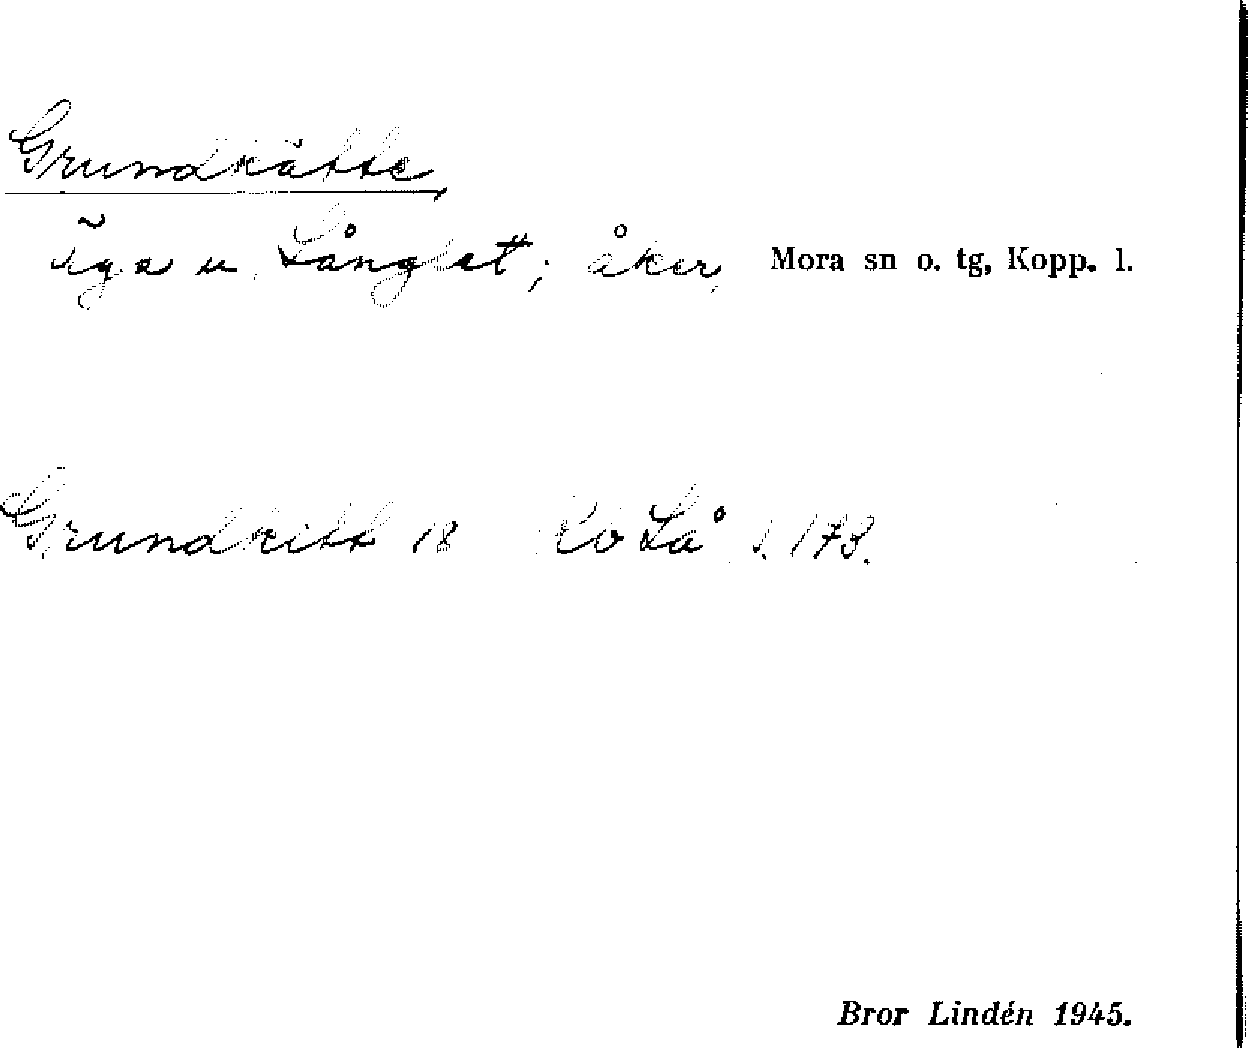 Grundkätte
äga u. Långlet; åker, Mora sn o. tg, Kopp. l.
Grundkitt 18 Lå s. 173.
Bror Lindén 1945.